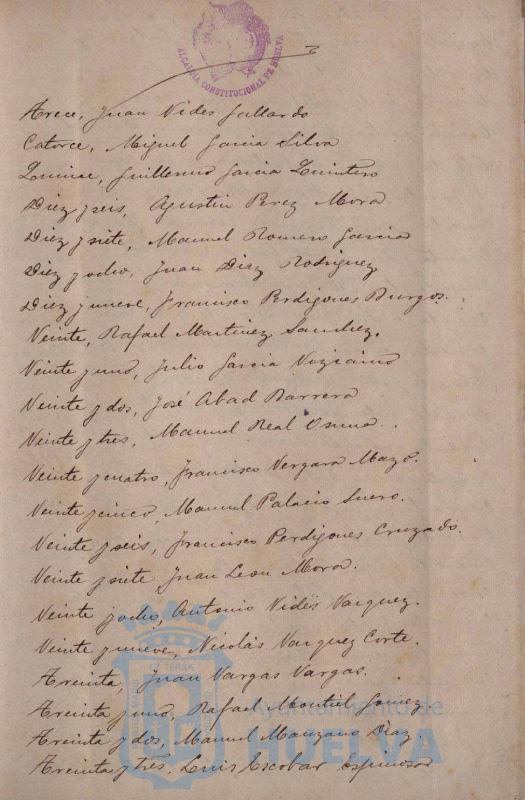 ALCALDIA CONSTITUCIONAL DE HUELVA
3
Trece, Juan Vides Gallardo
Catorce, Miguel Garcia Silva
Quince, Guillermo Garcia Quintero
Diez y seis, Agustin Perez Mora
Diez y siete, Manuel Romero Garcia
Diez y ocho, Juan Diaz Rodriguez
Diez y nueve, Francisco Perdigones Burgos.
Veinte, Rafael Martinez Sanchez.
Veinte y uno, Julio Garcia Vizcaino
Veinte y dos, José Abad Barrera
Veinte y tres, Manuel Real Osuna.
Veinte y cuatro, Francisco Vergara Mazo.
Veinte y cinco, Manuel Palacio Suero.
Veinte y seis, Francisco Perdigones Cruzado.
Veinte y siete, Juan Leon Mora.
Veinte y ocho, Antonio Vides Vazquez.
Veinte y nueve, Nicolás Vazquez Corte.
Treinta, Juan Vargas Vargas.
Treinta y uno, Rafael Montiel Gomez.
Treinta y dos, Manuel Manzano Diaz.
Treinta y tres, Luis Escobar Espinosa
Ayuntamiento de
HUELVA